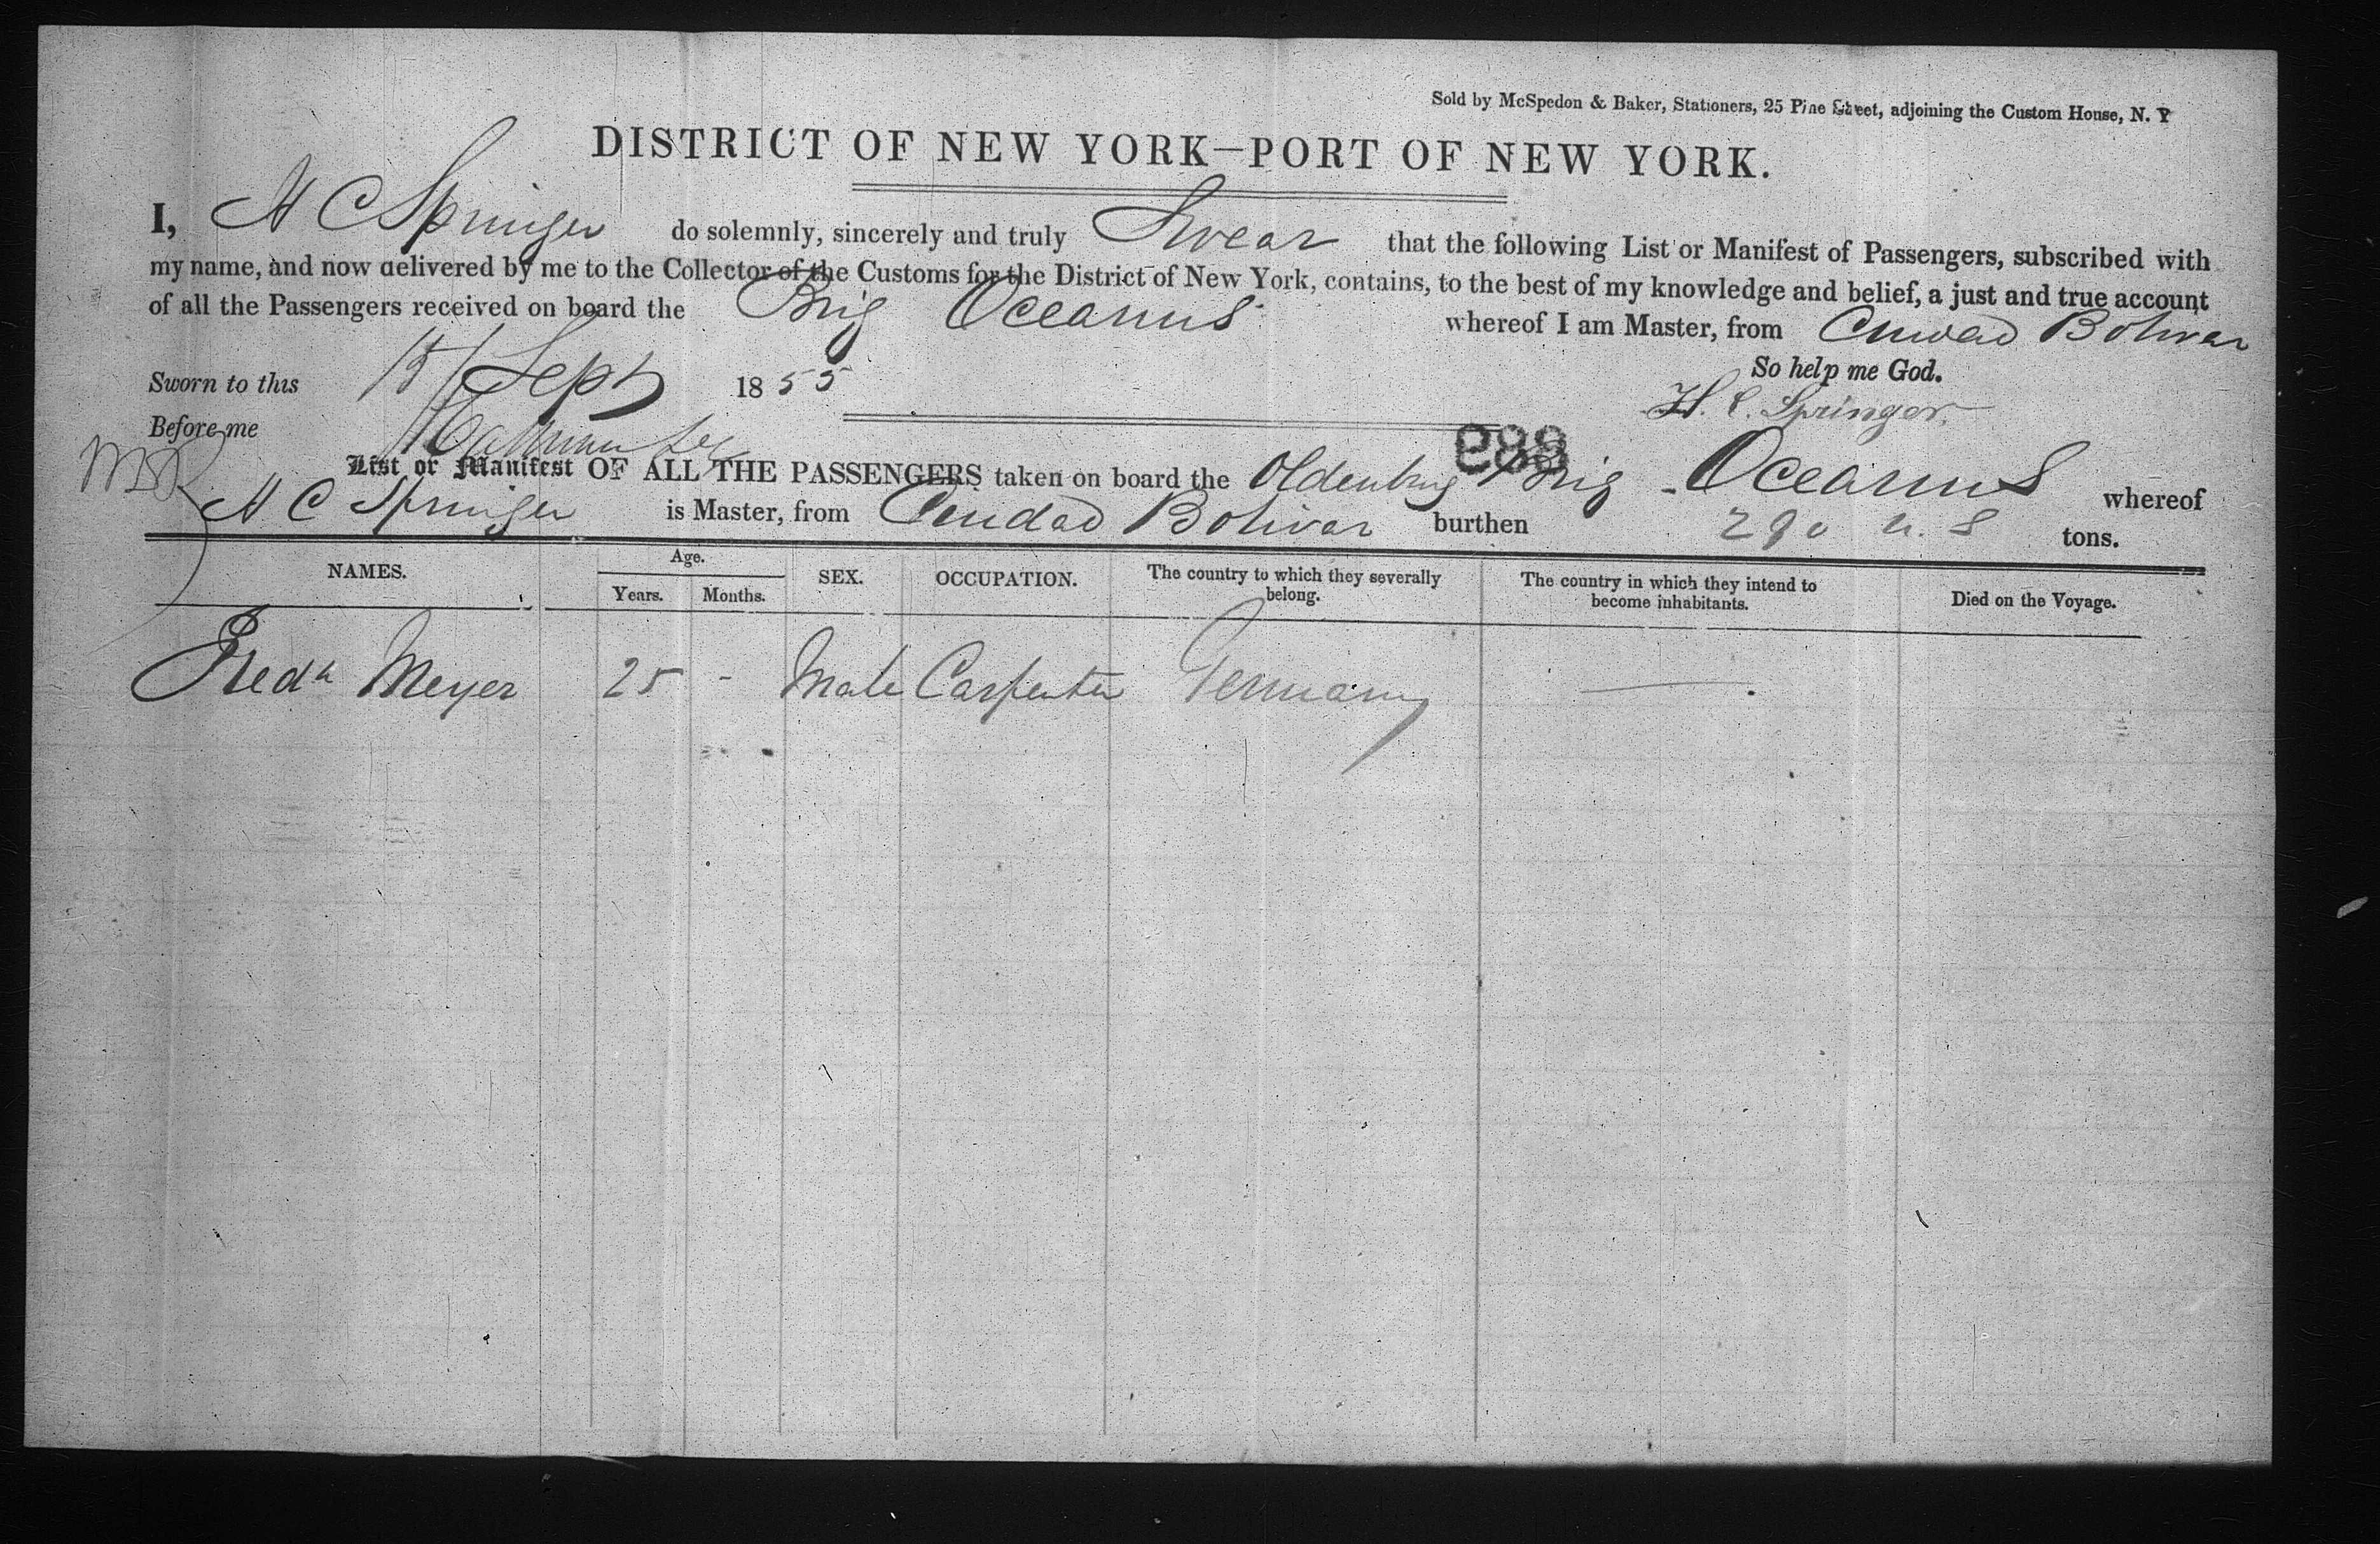 Sold by McSpedon & Baker, Stationers, 25 Pine Street, adjoining the Custom House, N. Y
DISTRICT OF NEW YORK—PORT OF NEW YORK.
I, H C Springer do solemnly, sincerely and truly Swear that the following List or Manifest of Passengers, subscribed with
my name, and now delivered by me to the Collector of the Customs for the District of New York, contains, to the best of my knowledge and belief, a just and true account
of all the Passengers received on board the Brig Oceanus whereof I am Master, from Ciudad Bolivar
So help me God.
Sworn to this 15/ Sept 1855
H. C. Springer
Before me
988
List or Manifest OF ALL THE PASSENGERS taken on board the Oldenburg Brig Oceanus whereof
H C Springer is Master, from Ciudad Bolivar burthen 290 tons.
NAMES. Age. Years. Months. SEX. OCCUPATION. The country to which they severally belong. The country in which they intend to become inhabitants. Died on the Voyage.
Fredk Meyer 25 - Male Carpenter Germany —